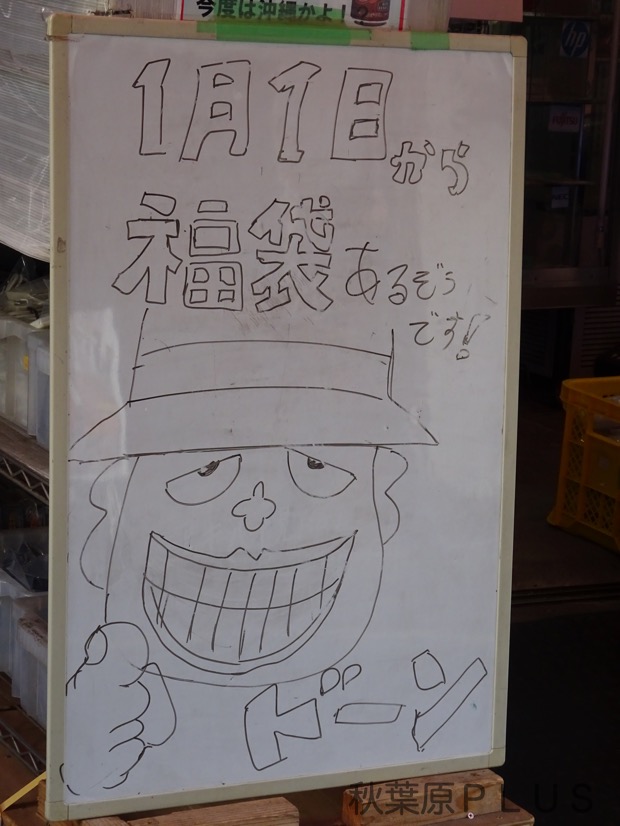 今度は沖縄かよ!
hp
1月1日から
福袋あるぞぅ
です!
ドーン
秋葉原PLUS